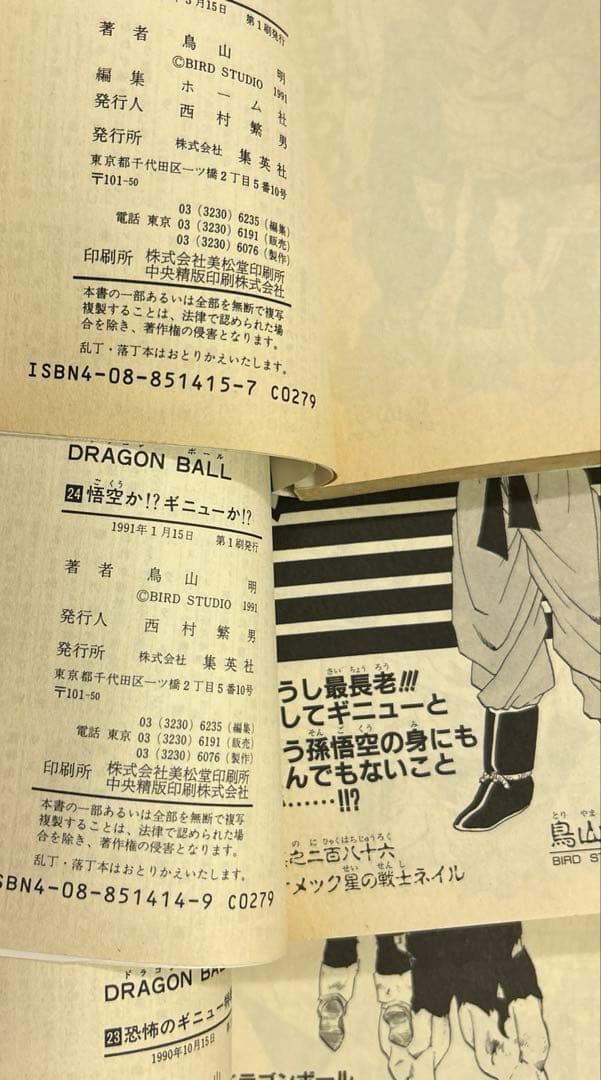 月15日 第1刷発行
著者 鳥山 明
©BIRD STUDIO 1991
編集 ホーム社
発行人 西村繁男
発行所 株式会社 集英社
東京都千代田区一ツ橋2丁目5番10号
〒101-50
03(3230)6235(編集)
電話 東京 03(3230)6191(販売)
03(3230)6076(製作)
印刷所 株式会社美松堂印刷所
中央精版印刷株式会社
本書の一部あるいは全部を無断で複写
複製することは、法律で認められた場
合を除き、著作権の侵害となります。
乱丁・落丁本はおとりかえいたします。
ISBN4-08-851415-7 C0279
ボール
DRAGON BALL
ごくう
24 悟空か!?ギニューか!?
1991年1月15日 第1刷発行
著者 鳥山 明
©BIRD STUDIO 1991
発行人 西村繁男
発行所 株式会社 集英社
東京都千代田区一ツ橋2丁目5番10号
〒101-50
03(3230)6235(編集)
電話 東京 03(3230)6191(販売)
03(3230)6076(製作)
印刷所 株式会社美松堂印刷所
中央精版印刷株式会社
本書の一部あるいは全部を無断で複写
複製することは、法律で認められた場
合を除き、著作権の侵害となります。
乱丁・落丁本はおとりかえいたします。
SBN4-08-851414-9 C0279
さいちょうろう
うし最長老!!!
してギニューと
そんごくう み
う孫悟空の身にも
んでもないこと
……!!?
のにひゃくはちじゅうろく
之二百八十六
せい せんし
メック星の戦士ネイル
とりやま
鳥山
BIRD ST
ドラゴン
DRAGON BALL
23 恐怖のギニュー特
1990年10月15日
ドラゴンボール